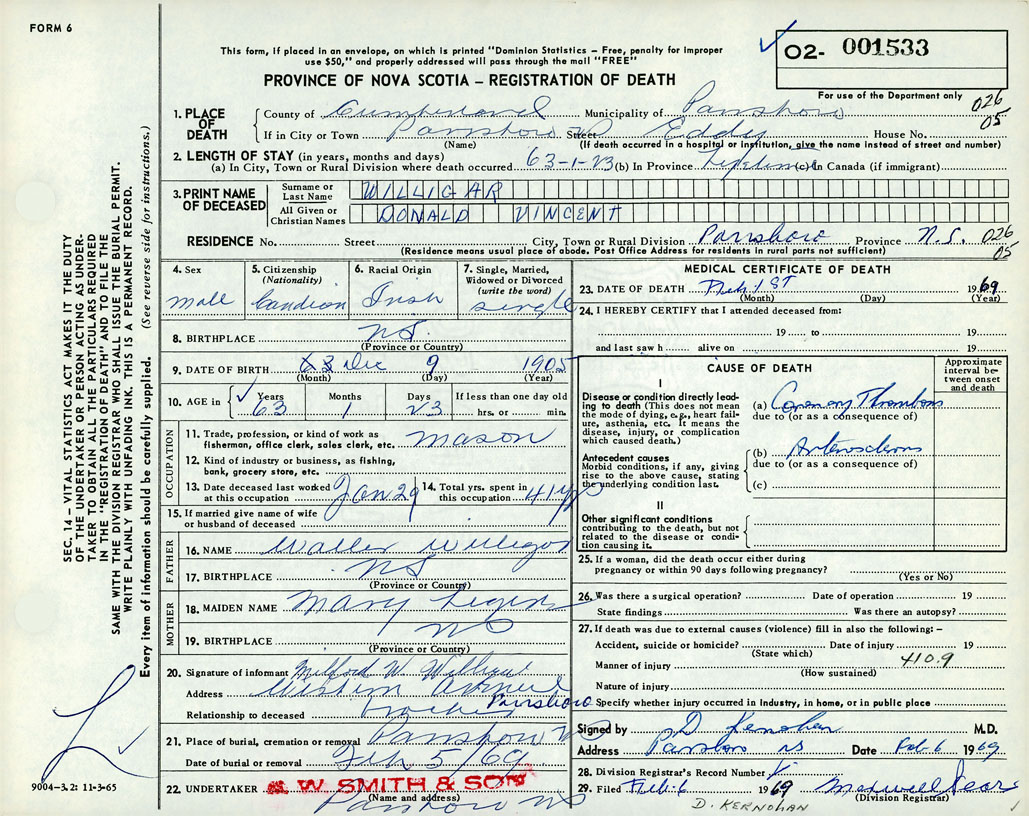 FORM 6
This form, if placed in an envelope, on which is printed "Dominion Statistics – Free, penalty for improper
use $50," and properly addressed will pass through the mail "FREE"
O2- 001533
For use of the Department only
PROVINCE OF NOVA SCOTIA – REGISTRATION OF DEATH
026
05
1. PLACE OF DEATH
County of Cumberland Municipality of Parrsboro
If in City or Town Parrsboro Street Eddy House No.
(Name) (If death occurred in a hospital or institution, give the name instead of street and number)
2. LENGTH OF STAY (in years, months and days)
(a) In City, Town or Rural Division where death occurred 63-1-23 (b) In Province Lifetime (c) In Canada (if immigrant)
3. PRINT NAME OF DECEASED
Surname or Last Name WILLIGAR
All Given or Christian Names DONALD VINCENT
RESIDENCE No. Street City, Town or Rural Division Parrsboro Province N.S. 026
05
(Residence means usual place of abode. Post Office Address for residents in rural parts not sufficient)
4. Sex
male
5. Citizenship
(Nationality)
Candian
6. Racial Origin
Irish
7. Single, Married,
Widowed or Divorced
(write the word)
single
8. BIRTHPLACE NS.
(Province or Country)
9. DATE OF BIRTH Dec 9 1905
(Month) (Day) (Year)
10. AGE in
Years Months Days If less than one day old
63 1 23 hrs. or min.
OCCUPATION
11. Trade, profession, or kind of work as
fisherman, office clerk, sales clerk, etc. mason
12. Kind of industry or business, as fishing,
bank, grocery store, etc.
13. Date deceased last worked
at this occupation Jan 29
14. Total yrs. spent in
this occupation 41 yrs
15. If married give name of wife
or husband of deceased
FATHER
16. NAME Walter Willigar
17. BIRTHPLACE NS
(Province or Country)
MOTHER
18. MAIDEN NAME Mary
19. BIRTHPLACE NS
(Province or Country)
20. Signature of informant Milford W. Willigar
Address Western Avenue Parrsboro
Relationship to deceased brother
21. Place of burial, cremation or removal Parrsboro NS
Date of burial or removal Feb 5/69
22. UNDERTAKER W. SMITH & SON
(Name and address)
Parrsboro NS
MEDICAL CERTIFICATE OF DEATH
23. DATE OF DEATH Feb. 1ST 1969
(Month) (Day) (Year)
24. I HEREBY CERTIFY that I attended deceased from:
19 to 19
and last saw h alive on 19
CAUSE OF DEATH
Approximate
interval be-
tween onset
and death
I
Disease or condition directly lead-
ing to death (This does not mean
the mode of dying, e.g., heart fail-
ure, asthenia, etc. It means the
disease, injury, or complication
which caused death.)
(a) Coronary Thrombosis
due to (or as a consequence of)
Antecedent causes
Morbid conditions, if any, giving
rise to the above cause, stating
the underlying condition last.
(b) Arterosclerosis
due to (or as a consequence of)
(c)
II
Other significant conditions
contributing to the death, but not
related to the disease or condi-
tion causing it.
25. If a woman, did the death occur either during
pregnancy or within 90 days following pregnancy?
(Yes or No)
26. Was there a surgical operation? Date of operation 19
State findings Was there an autopsy?
27. If death was due to external causes (violence) fill in also the following: –
Accident, suicide or homicide? Date of injury 19
(State which)
Manner of injury 410.9
(How sustained)
Nature of injury
Specify whether injury occurred in Industry, in home, or in public place
Signed by D. Kernohan M.D.
Address Parrsboro NS Date Feb 6 1969
28. Division Registrar's Record Number
29. Filed Feb. 6 1969 Maxwell
(Division Registrar)
D. KERNOHAN
SEC. 14 – VITAL STATISTICS ACT MAKES IT THE DUTY
OF THE UNDERTAKER OR PERSON ACTING AS UNDER-
TAKER TO OBTAIN ALL THE PARTICULARS REQUIRED
IN THE "REGISTRATION OF DEATH" AND TO FILE THE
SAME WITH THE DIVISION REGISTRAR WHO SHALL ISSUE THE BURIAL PERMIT.
WRITE PLAINLY WITH UNFADING INK. THIS IS A PERMANENT RECORD.
Every item of information should be carefully supplied. (See reverse side for instructions.)
9004-3.2: 11-3-65